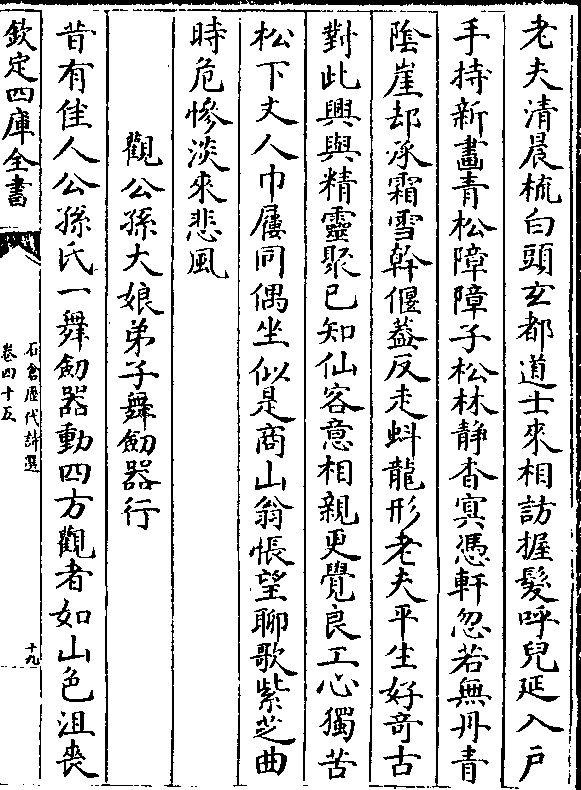 老夫清晨梳白頭玄都道士來相訪握髮呼兒延入戶
手持新畫青松障障子松林静杳㝠憑軒忽若無丹青
陰崖却承霜雪幹偃葢反走蚪龍形老夫平生好竒古
對此興與精靈聚已知仙客意相親更覺良工心獨苦
松下丈人巾屨同偶坐似是商山翁悵望聊歌紫芝曲
時危慘淡來悲風
觀公孫大娘弟子舞劒器行
昔有佳人公孫氏一舞劒器動四方觀者如山色沮喪
欽定四庫全書
石倉歷代詩選
卷四十五
十九